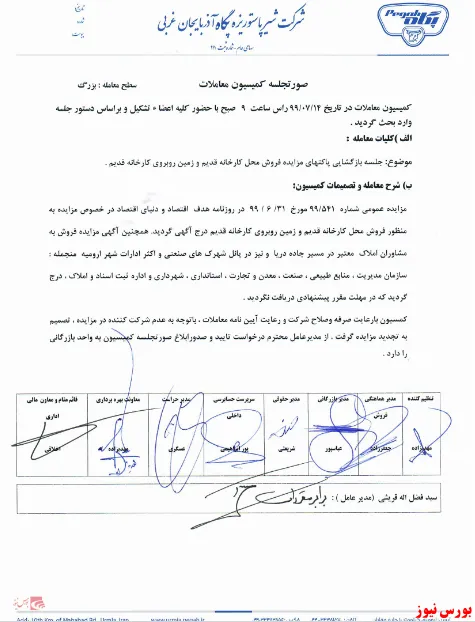 شرکت شیر پاستوریزه پگاه آذربایجان غربی
Pegah
پگاه
تاریخ
شماره
پیوست
صورتجلسه کمیسیون معاملات
سطح معامله : بزرگ
کمیسیون معاملات در تاریخ ۹۹/۰۷/۱۴ راس ساعت ۹ صبح با حضور کلیه اعضاء تشکیل و براساس دستور جلسه
وارد بحث گردید .
الف )کلیات معامله :
موضوع: جلسه بازگشایی پاکتهای مزایده فروش محل کارخانه قدیم و زمین روبروی کارخانه قدیم .
ب) شرح معامله و تصمیمات کمیسیون:
مزایده عمومی شماره ۹۹/۵۴۱ مورخ ۳۱/ ۶ / ۹۹ در روزنامه هدف اقتصاد و دنیای اقتصاد در خصوص مزایده به
منظور فروش محل کارخانه قدیم و زمین روبروی کارخانه قدیم درج آگهی گردید. همچنین آگهی مزایده فروش به
مشاوران املاک معتبر در مسیر جاده دریا و نیز در پانل شهرک های صنعتی و اکثر ادارات شهر ارومیه منجمله :
سازمان مدیریت ، منابع طبیعی ، صنعت ، معدن و تجارت ، استانداری ، شهرداری و اداره ثبت اسناد و املاک ، درج
گردید که در مهلت مقرر پیشنهادی دریافت نگردید .
کمسیون بارعایت صرفه وصلاح شرکت و رعایت آیین نامه معاملات ، باتوجه به عدم شرکت کننده در مزایده ، تصمیم
به تجدید مزایده گرفت . از مدیرعامل محترم درخواست تایید و صدورابلاغ صورتجلسه کمیسیون به واحد بازرگانی
را دارد .
تنظیم کننده
مهدیزاده
مدیر هماهنگی فروش
جعفرزاده
مدیر بازرگانی
عباسپور
مدیر حقوقی
شریفی
سرپرست حسابرسی داخلی
پور ابراهیمی
مدیر حراست
عسگری
معاونت بهره برداری
مهدیزاده
قائم مقام و معاون مالی اداری
اخلاقی
سید فضل اله قریشی (مدیر عامل ) :
بورس نیوز